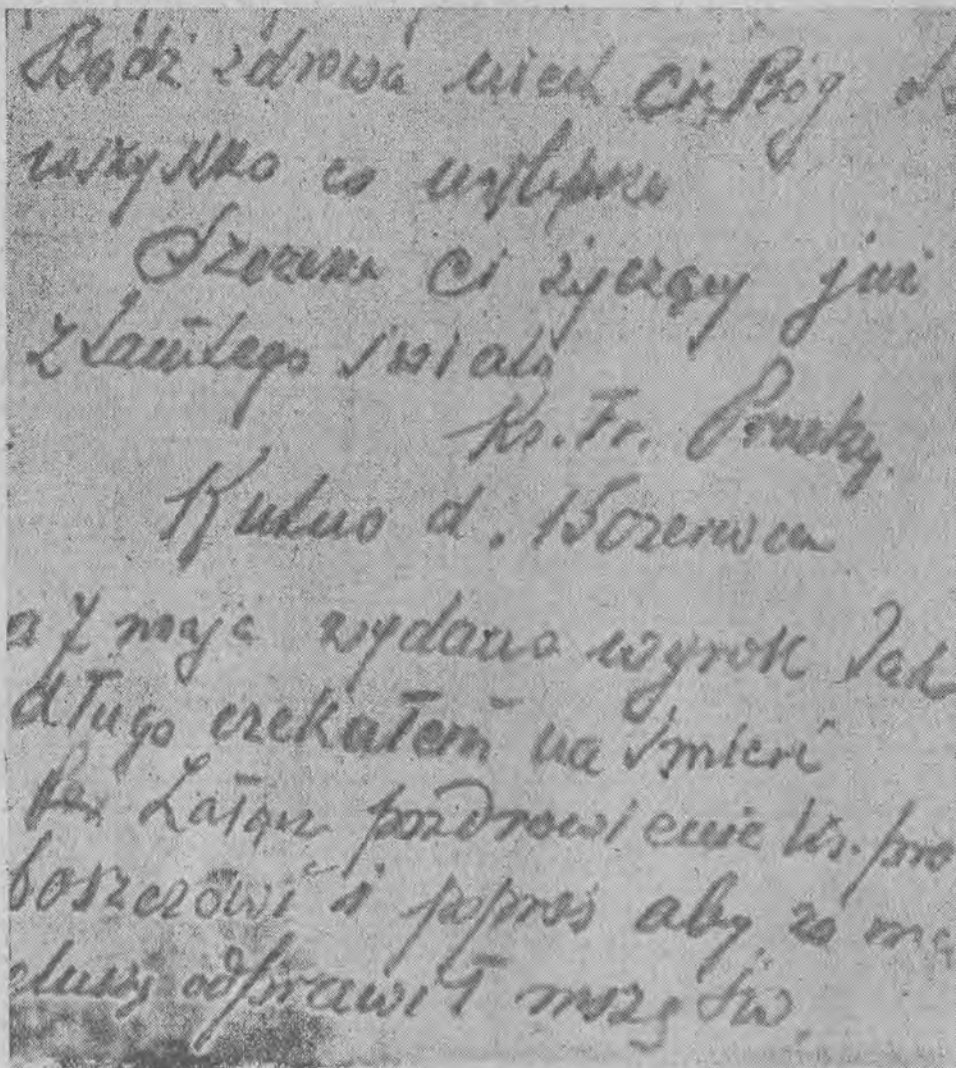 Bądź zdrowa niech Cię Bóg
wszystko co najlepsze
Szczerze Ci życzący już
z tamtego świata
Ks. Fr.
Kutno d. 15 czerwca
a 7 maja wydano wyrok Tak
długo czekałem na śmierć
pozdrowienie ks. pro
boszczowi i popros aby za mą
duszę odprawił mszę św.